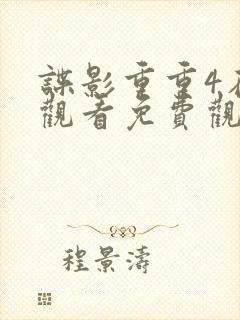 諜影重重4
觀看免費觀
程景濤